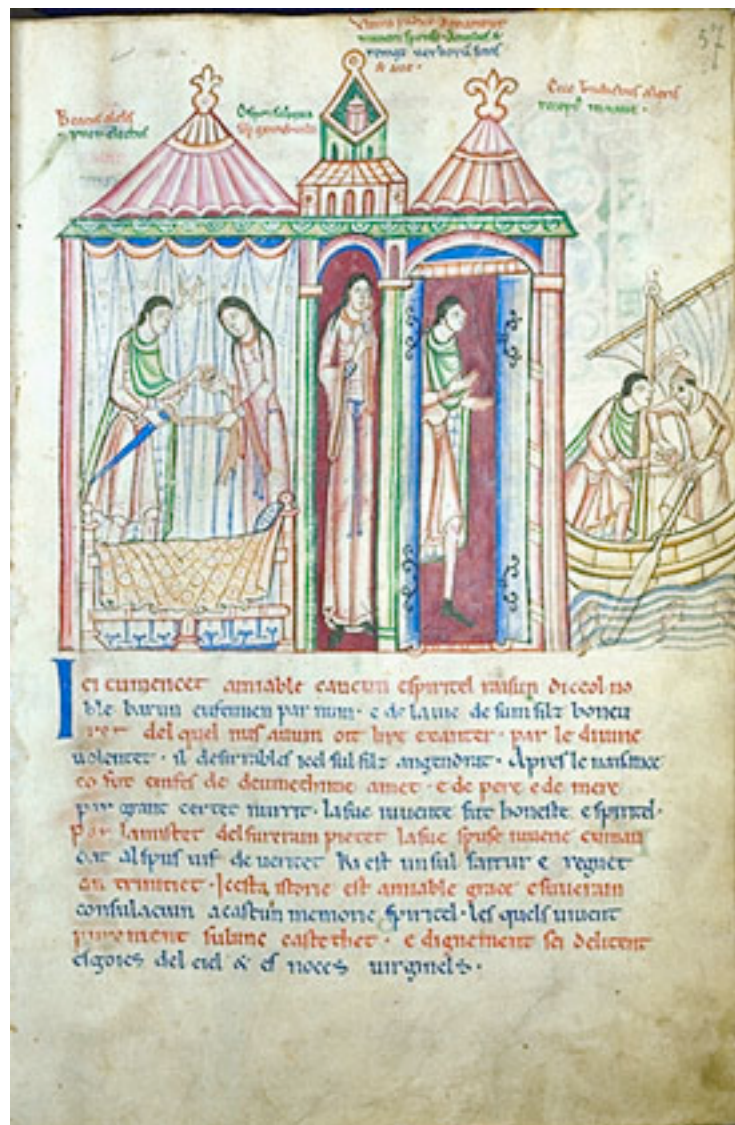 57
Ultima pudice donantur
munera sponse. Anulus &
renge verborū finis
& ave.
Beatus alexis
puer electus
O sponsa beata
semp gemebunda
Ecce benedictus alexis
receptꝰ in nave.
Ici cumencet amiable cancun espiritel raisun diceol no
ble barun eufemien par num. e de la uie de sum filz boneu
ret del quel nus auum oit lire e canter. par le diuine
uolentet. il desirrables icel sul filz angendrat. Apres le naisance
co fut emfes de deumethime amet. e de pere e de mere
par grant certet nurrit. la sue iuuente fut honeste e spiritel.
Par lamistet del surerain pietet la sue spuse iuuene cuman
dat al spus uif de ueritet ki est un sul faitur e regnet
an trinitiet. Icesta istorie est amiable grace e suuerain
consulaciun a cascun memorie spiritel. les quels uiuent
purement sulunc castethet. e dignement sei delitent
es goies del ciel & es noces uirginels.